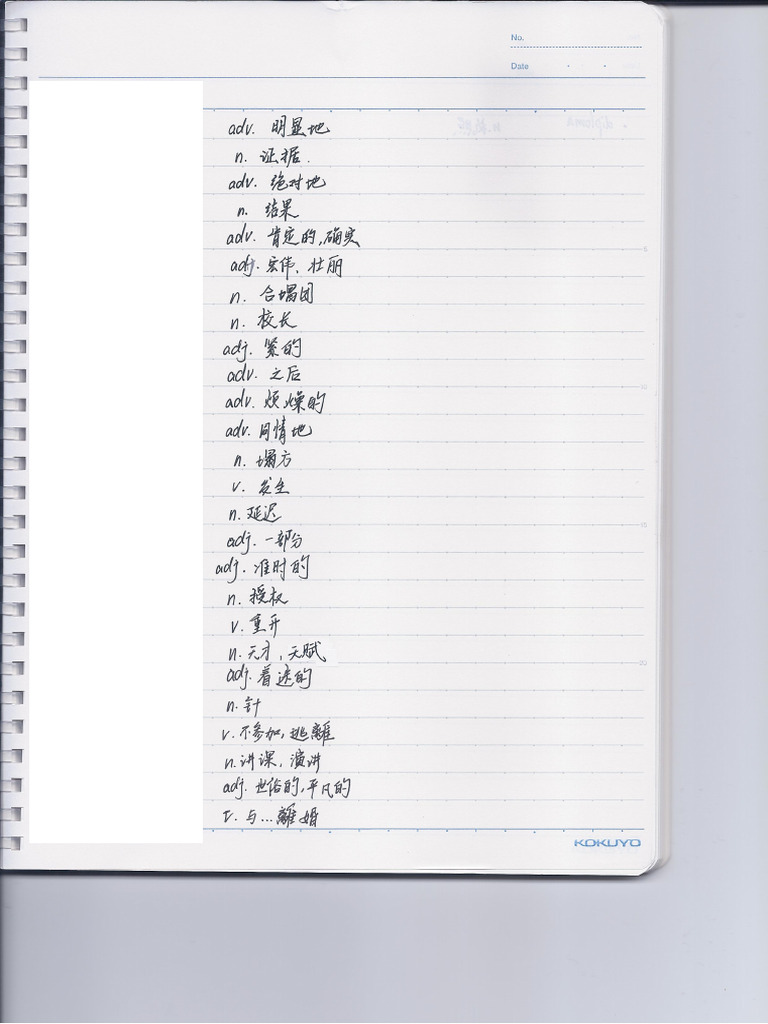 No.
Date
adv. 明显地
n. 证据.
adv. 绝对地
n. 结果
adv. 肯定的,确实
adj. 宏伟、壮丽
n. 合唱团
n. 校长
adj. 紧的
adv. 之后
adv. 烦燥的
adv. 同情地
n. 塌方
v. 发生
n. 延迟
adj. 一部分
adj. 准时的
n. 授权
v. 重开
n. 天才,天赋
adj. 着迷的
n. 针
v. 不参加,逃離
n. 讲课,演讲
adj. 世俗的,平凡的
v. 与...離婚
KOKUYO